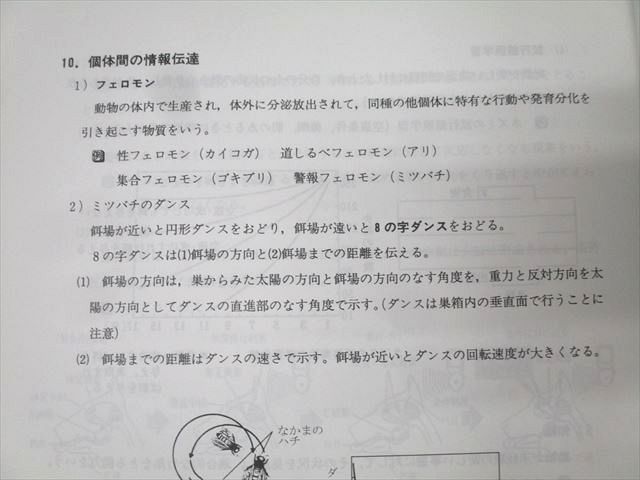 10. 個体間の情報伝達
1）フェロモン
動物の体内で生産され，体外に分泌放出されて，同種の他個体に特有な行動や発育分化を
引き起こす物質をいう。
例 性フェロモン（カイコガ） 道しるべフェロモン（アリ）
集合フェロモン（ゴキブリ） 警報フェロモン（ミツバチ）
2）ミツバチのダンス
餌場が近いと円形ダンスをおどり，餌場が遠いと8の字ダンスをおどる。
8の字ダンスは(1)餌場の方向と(2)餌場までの距離を伝える。
(1) 餌場の方向は，巣からみた太陽の方向と餌場の方向のなす角度を，重力と反対方向を太
陽の方向としてダンスの直進部のなす角度で示す。（ダンスは巣箱内の垂直面で行うことに
注意）
(2) 餌場までの距離はダンスの速さで示す。餌場が近いとダンスの回転速度が大きくなる。
なかまの
ハチ
ダ